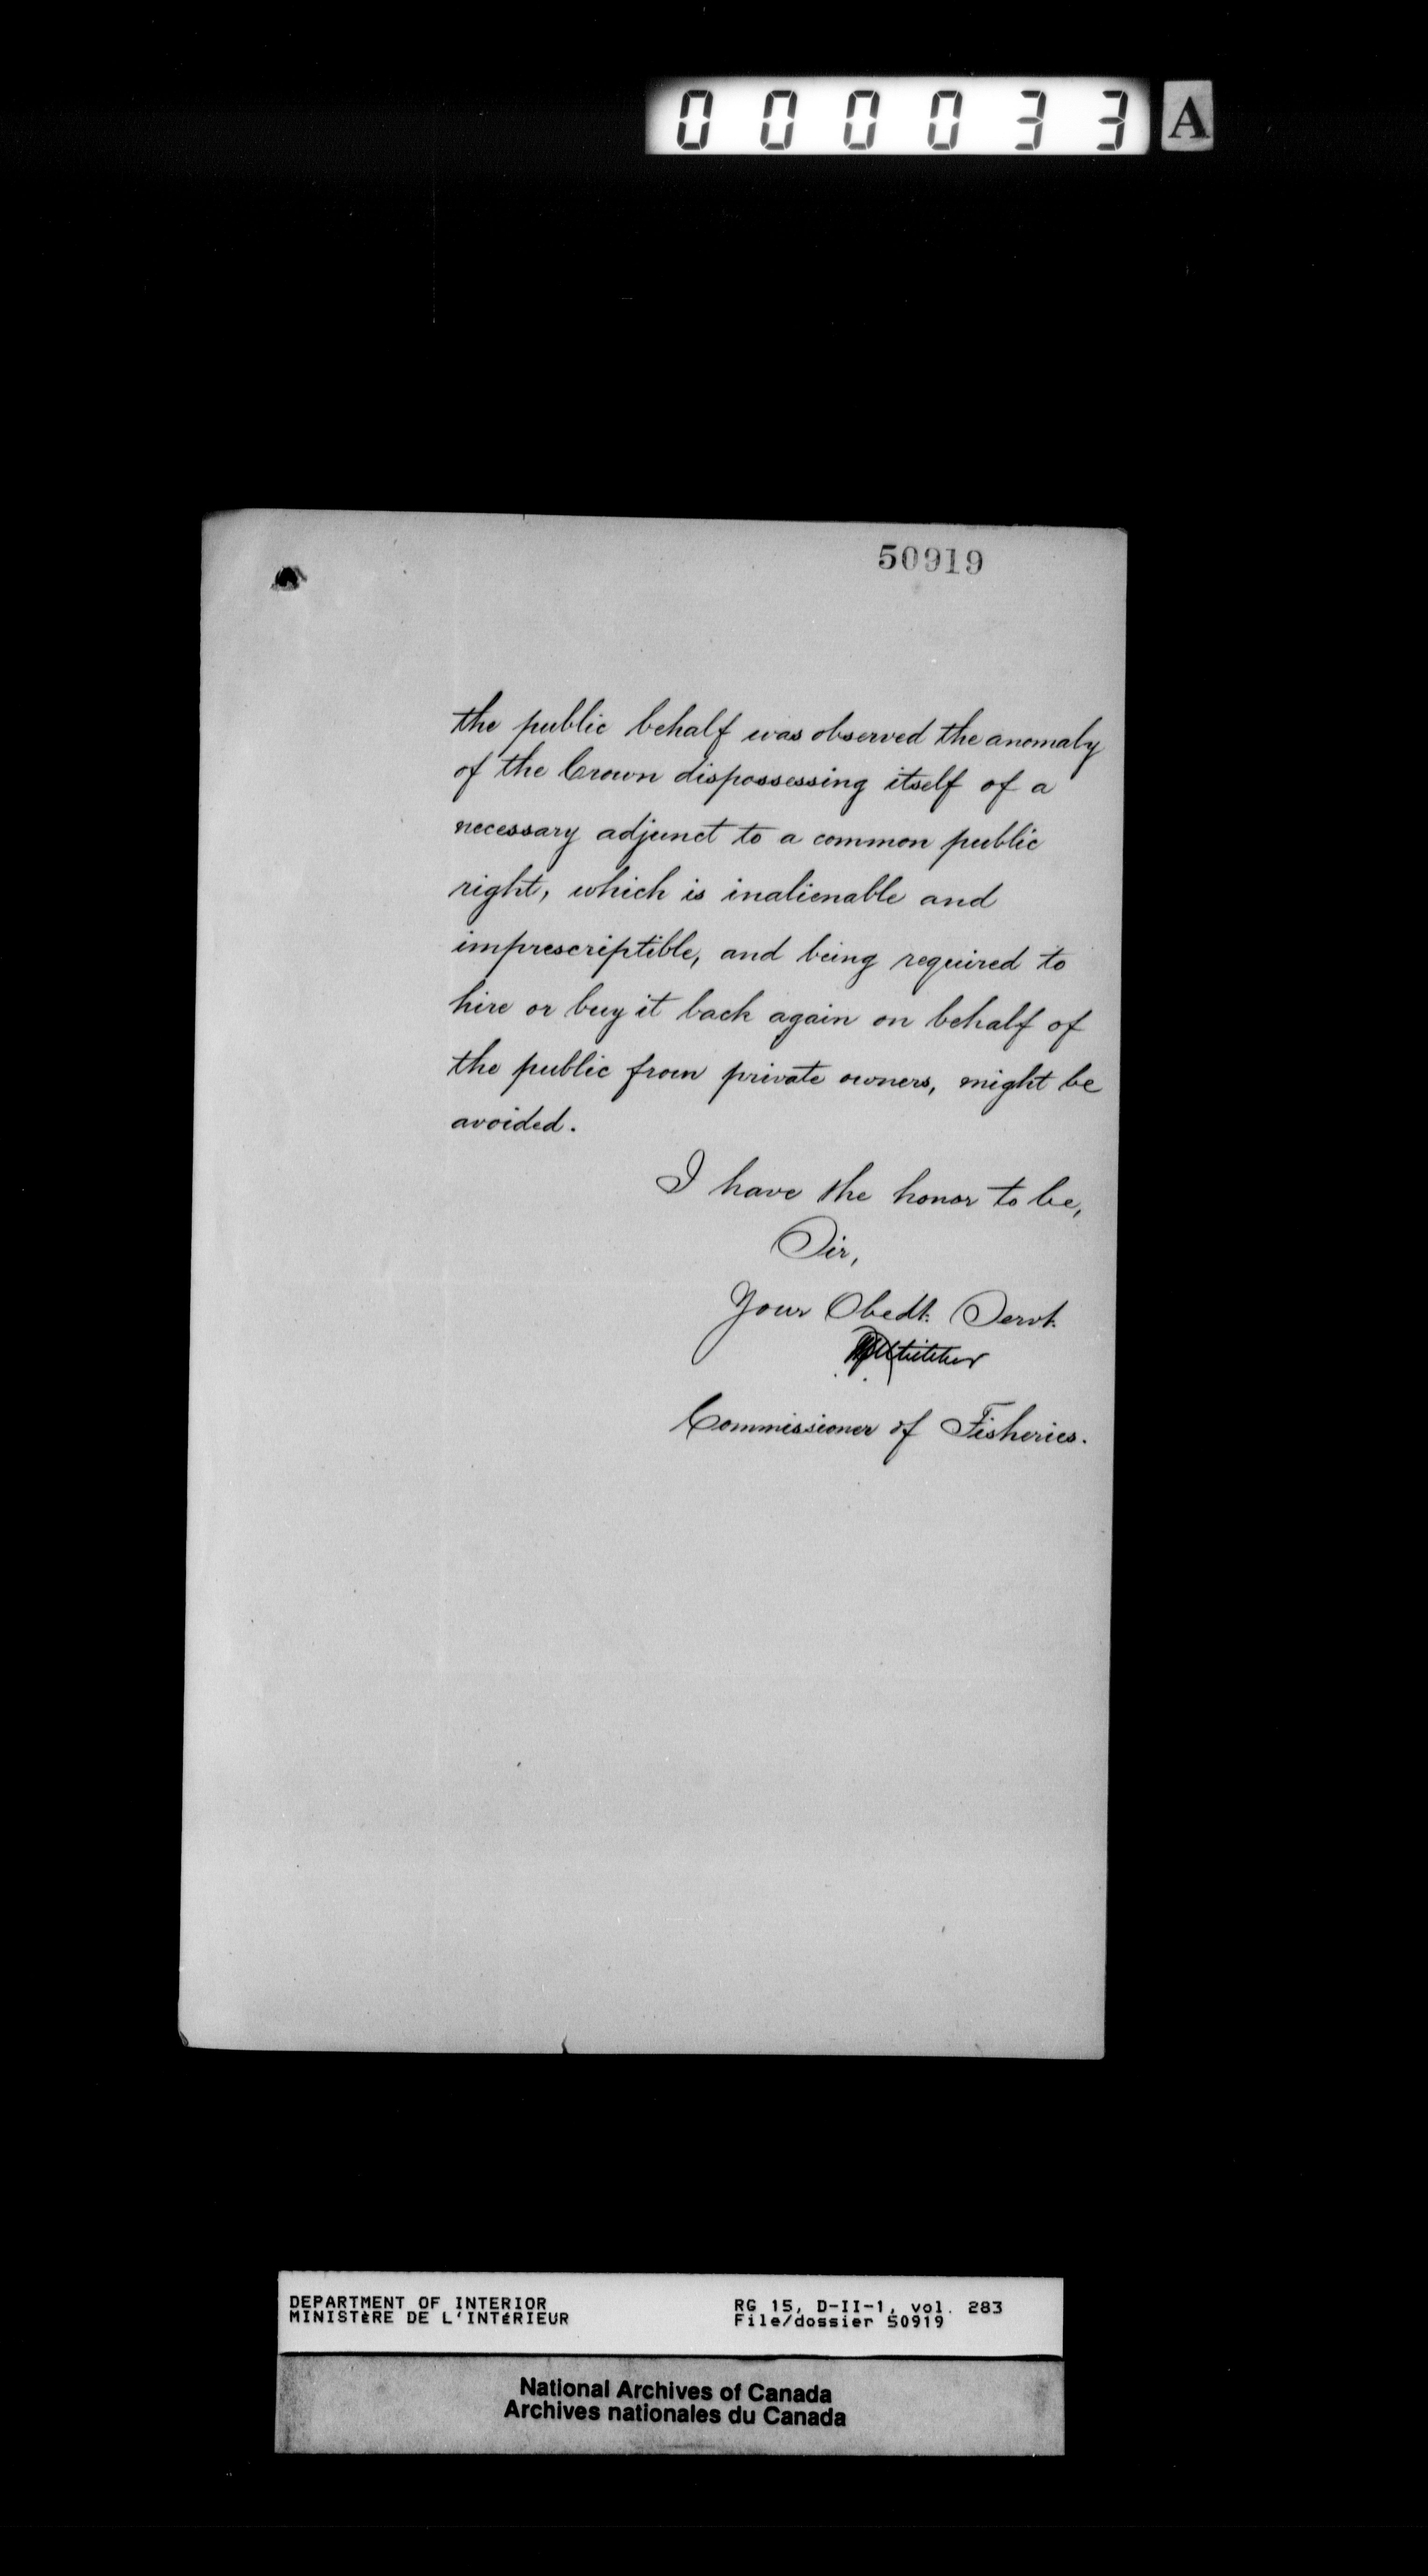 000033 A
50919
the public behalf was observed the anomaly
of the Crown dispossessing itself of a
necessary adjunct to a common public
right, which is inalienable and
imprescriptible, and being required to
hire or buy it back again on behalf of
the public from private owners, might be
avoided.
I have the honor to be,
Sir,
Your Obedt. Servt.
Commissioner of Fisheries.
DEPARTMENT OF INTERIOR
MINISTÈRE DE L'INTÉRIEUR
RG 15, D-II-1, vol. 283
File/dossier 50919
National Archives of Canada
Archives nationales du Canada